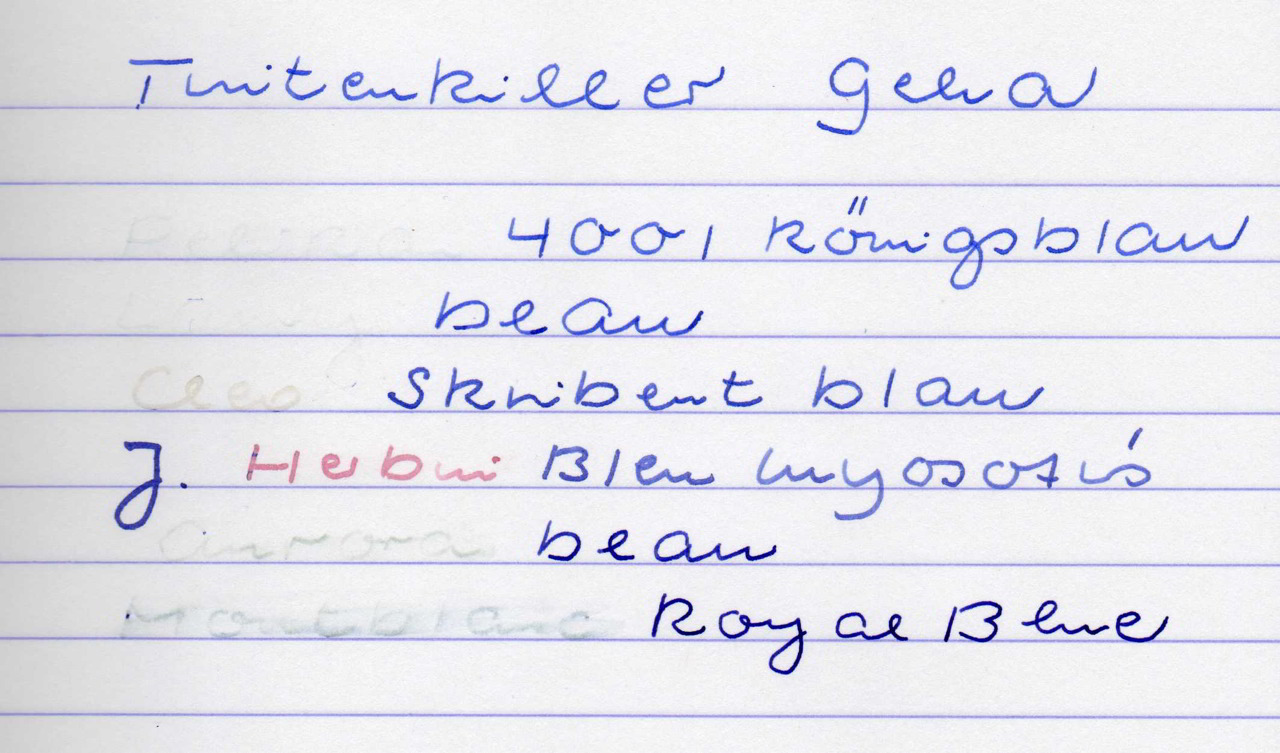 Tintenkiller Geha
Pelikan 4001 Königsblau
Lamy blau
Cleo Skribent blau
J. Herbin Bleu Myosotis
Aurora blau
Montblanc Royal Blue